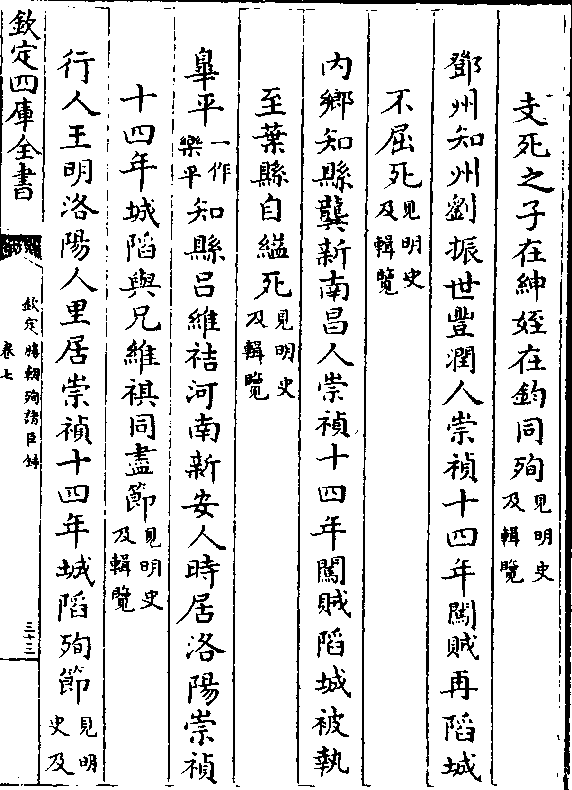 支死之子在紳姪在鈞同殉見明史及輯覽
鄧州知州劉振世豐潤人崇禎十四年闖賊再陷城
不屈死見明史及輯覽
內鄉知縣龔新南昌人崇禎十四年闖賊陷城被執
至葉縣自縊死見明史及輯覽
皐平一作樂平知縣呂維祮河南新安人時居洛陽崇禎
十四年城陷與兄維祺同盡節見明史及輯覽
行人王明洛陽人里居崇禎十四年城陷殉節見明史及
欽定四庫全書
欽定勝朝殉諸臣錄
卷七
三十三